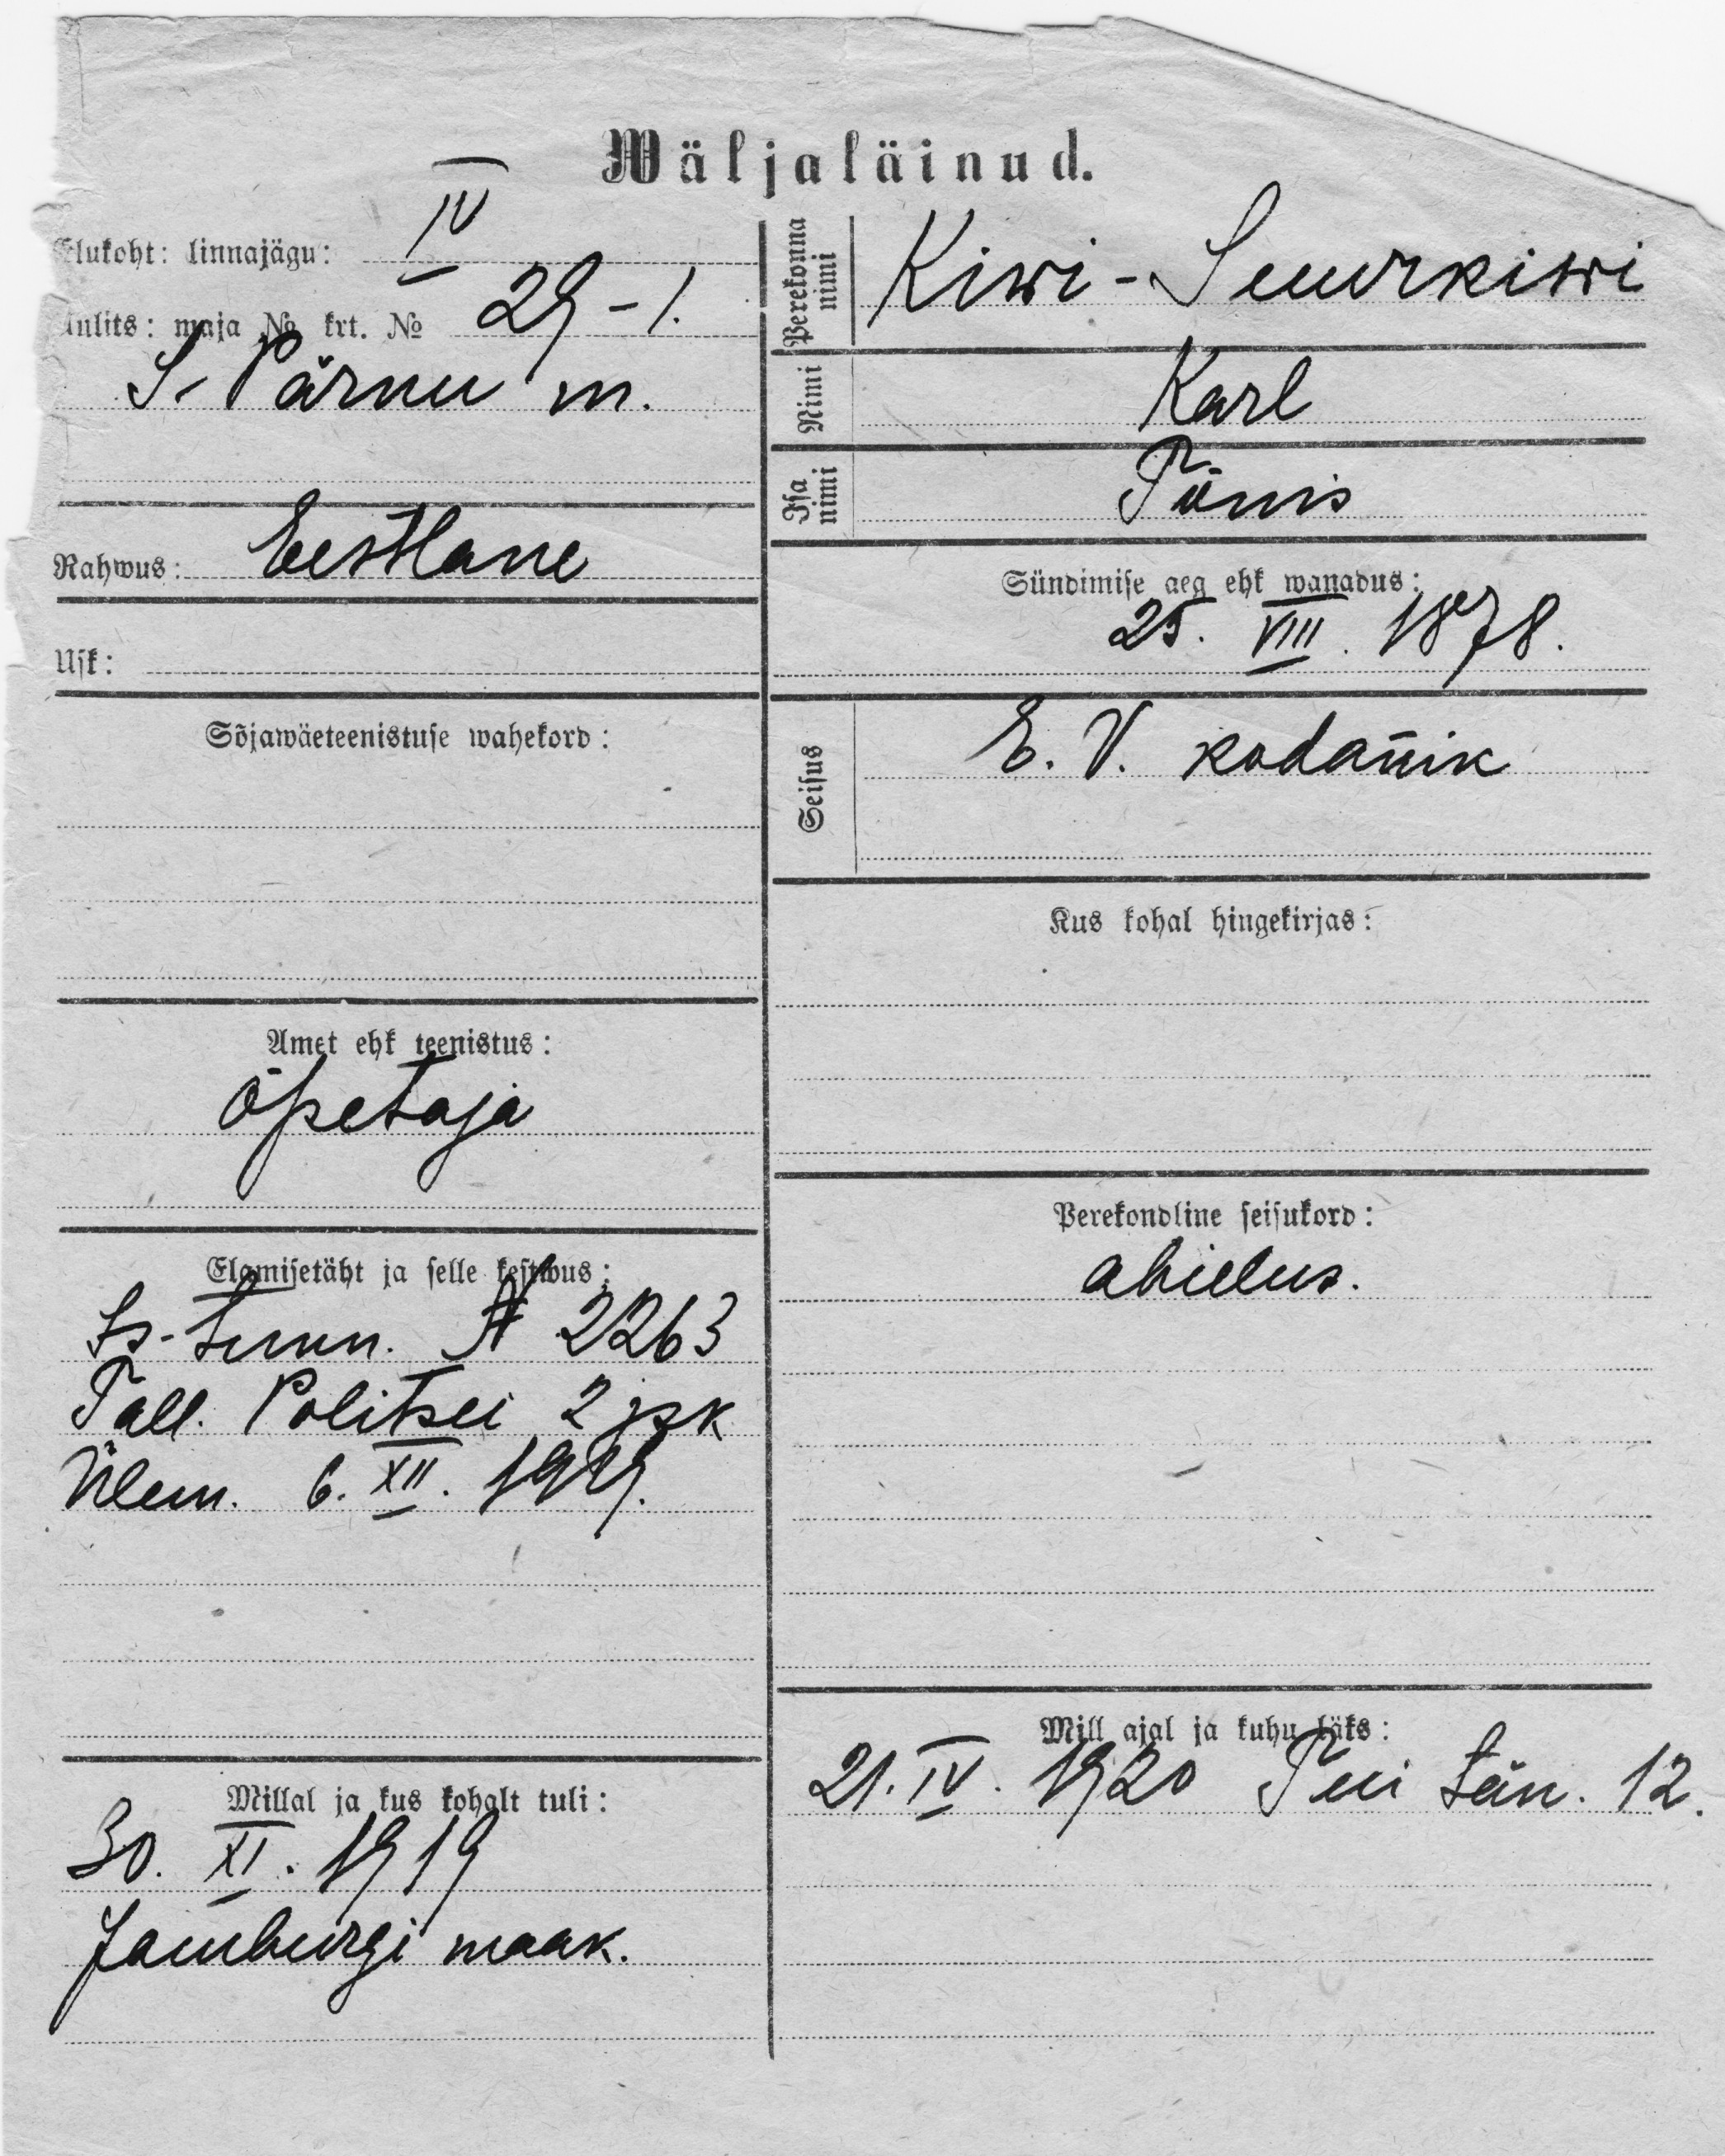 Wäljaläinud.
Elukoht: linnajägu: IV
Uulits: maja № krt. № 29-1.
S. Pärnu m.
Rahwus: Eestlane
Usk:
Sõjawäeteenistuse wahekord:
Amet ehk teenistus:
Õpetaja
Elamisetäht ja selle kestwus:
Is-tunn. № 2263
Tall. Politsei 2 jsk
Ülem. 6. XII. 1919.
Millal ja kus kohalt tuli:
30. XI. 1919
Jamburgi maak.
Perekonna nimi Kiwi-Suurkiwi
Nimi Karl
Isa nimi Tõnis
Sündimise aeg ehk wanadus:
25. VIII. 1878.
Seisus E. V. kodanik
Kus kohal hingekirjas:
Perekondline seisukord:
abielus.
Mill ajal ja kuhu läks:
21. IV. 1920 Tui tän. 12.